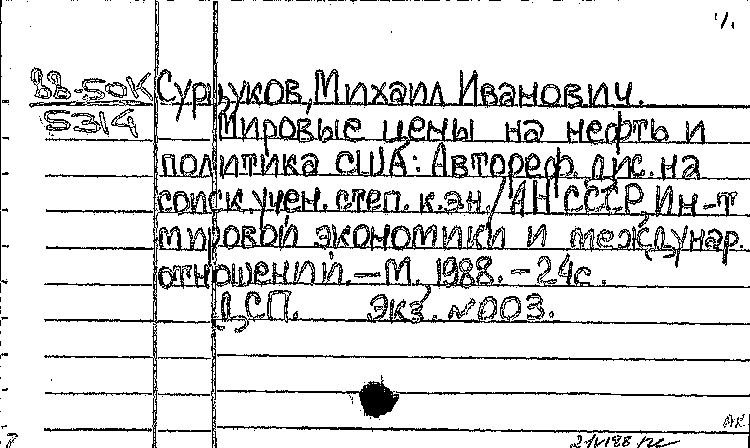 88-50К Сурцуков, Михаил Иванович.
5314 Мировые цены на нефть и
политика США: Автореф. дис. на
соиск. учен. степ. к.эн./АН СССР, Ин-т
мировой экономики и междунар.
отношений. — М., 1988. - 24с.
ДСП. Экз. №003.
АК